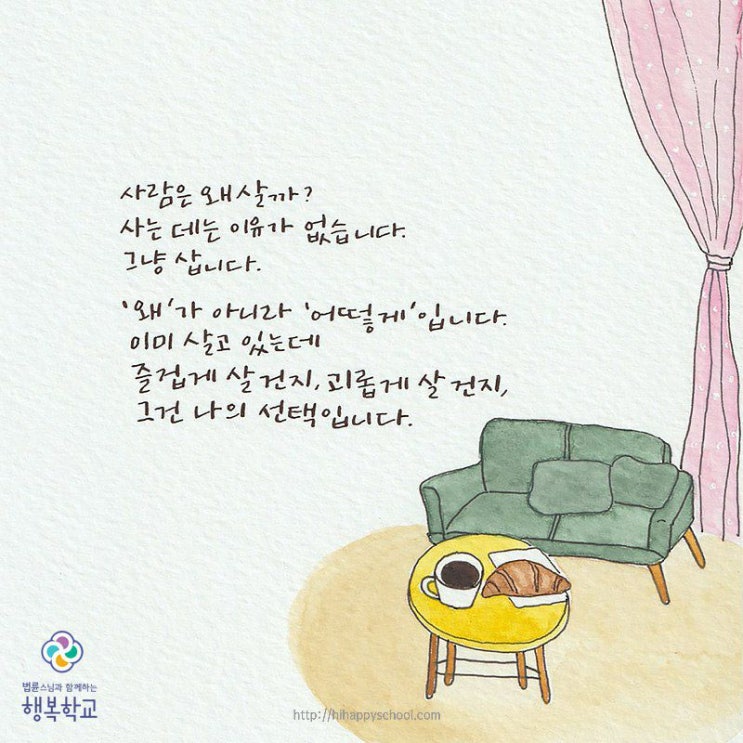 사람은 왜 살까?
사는 데는 이유가 없습니다.
그냥 삽니다.
'왜'가 아니라 '어떻게'입니다.
이미 살고 있는데
즐겁게 살 건지, 괴롭게 살 건지,
그건 나의 선택입니다.
법륜스님과 함께하는
행복학교
http://hihappyschool.com